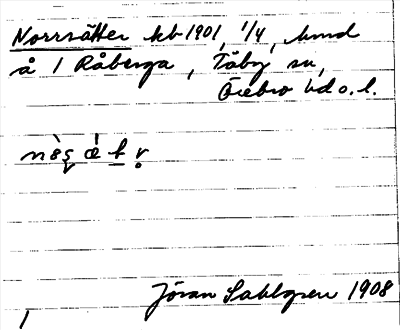 Norrsätter kb 1901, 1/4, hmd
å 1 Råberga, Täby sn,
Örebro hd o. l.
Jöran Sahlgren 1908
1